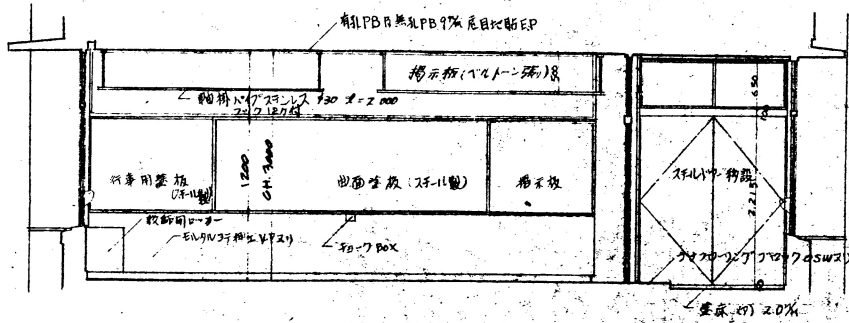 有孔PB内無孔PB9㎜底目地貼EP
掲示板(ベルトーン張り)
軸掛パイプステンレス φ30 ℓ=2000
フック12ヶ付
650
100
行事用塗板
(スチール製)
1200
CH.3000
曲面塗板(スチール製)
掲示板
スチールドアー
2.215
教師用ロッカー
モルタルコテ押エVPヌリ
チョークBOX
フローリングブロック OSWヌリ